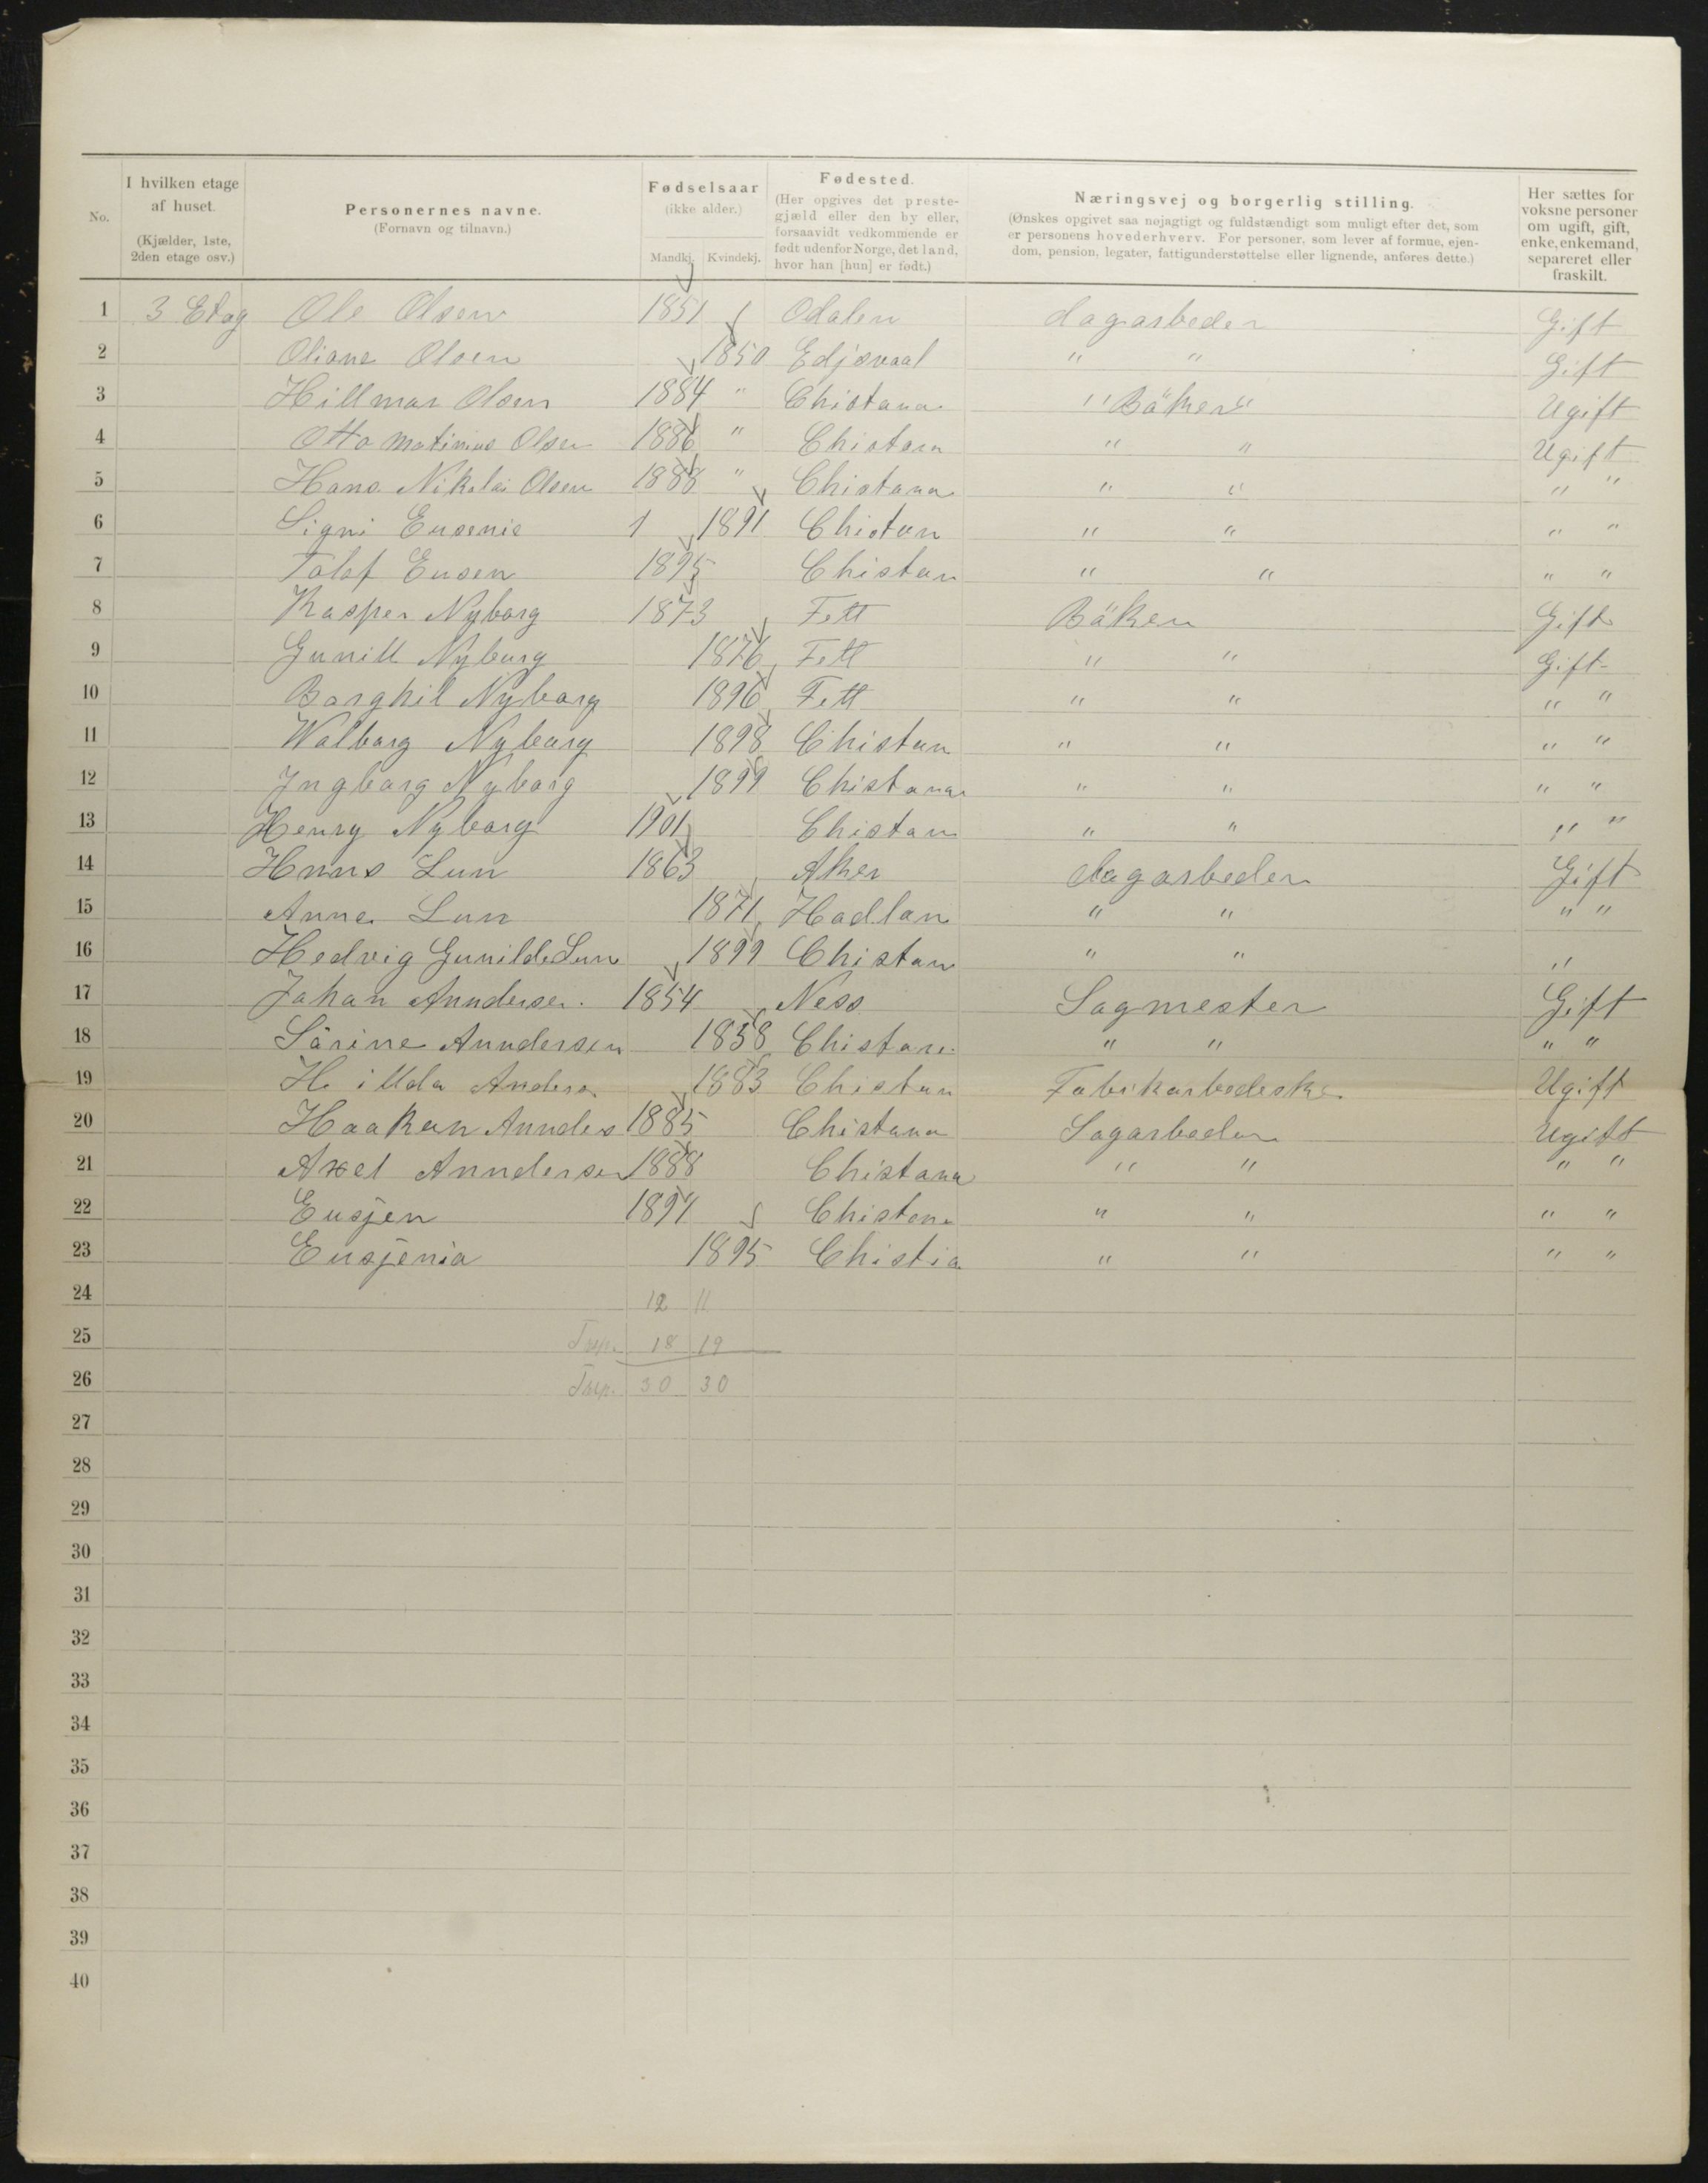 No.
I hvilken etage af huset. (Kjælder, 1ste, 2den etage osv.)
Personernes navne. (Fornavn og tilnavn.)
Fødselsaar (ikke alder.) Mandkj. Kvindekj.
Fødested. (Her opgives det prestegjæld eller den by eller, forsaavidt vedkommende er født udenfor Norge, det land, hvor han [hun] er født.)
Næringsvej og borgerlig stilling. (Ønskes opgivet saa nøjagtigt og fuldstændigt som muligt efter det, som er personens hovederhverv. For personer, som lever af formue, ejendom, pension, legater, fattigunderstøttelse eller lignende, anføres dette.)
Her sættes for voksne personer om ugift, gift, enke, enkemand, separeret eller fraskilt.
1 3 Etag Ole Olsen 1851 Odalen dagarbeder Gift
2 Oliane Olsen 1850 Edjsvaal " " Gift
3 Hillmar Olsen 1884 " Chistana " Bäker " Ugift
4 Otto Matinius Olsen 1886 " Chistan " " Ugift
5 Hans Nikolai Olsen 1888 " Chistana " " " "
6 Signi Eugenie 1 1891 Chistan " " " "
7 Tolof Eugen 1895 Chistan " " " "
8 Kasper Nyborg 1873 Fett Bäker Gift
9 Gunill Nyborg 1876 Fett " " Gift
10 Borghil Nyborg 1896 Fett " " " "
11 Walborg Nyborg 1898 Chistan " " " "
12 Ingborg Nyborg 1899 Chistana " " " "
13 Henry Nyborg 1901 Chistan " " " "
14 Hans Lun 1863 Aker dagarbeder Gift
15 Anne Lun 1871 Hadlan " " " "
16 Hedvig Gunilde Lun 1899 Chistan " " "
17 Johan Anndersen. 1854 Ness Sagmester Gift
18 Särine Anndersen 1858 Chistan. " " " "
19 Hillda Anders 1883 Chistan Fabikarbedeske Ugift
20 Haakon Annders 1885 Chistana Sagarbeder Ugift
21 Axel Anndersen 1888 Chistana " " " "
22 Eusjen 1891 Chistana " " " "
23 Eusjenia 1895 Chistia " " " "
24 12 11
25 18 19
26 30 30
27
28
29
30
31
32
33
34
35
36
37
38
39
40